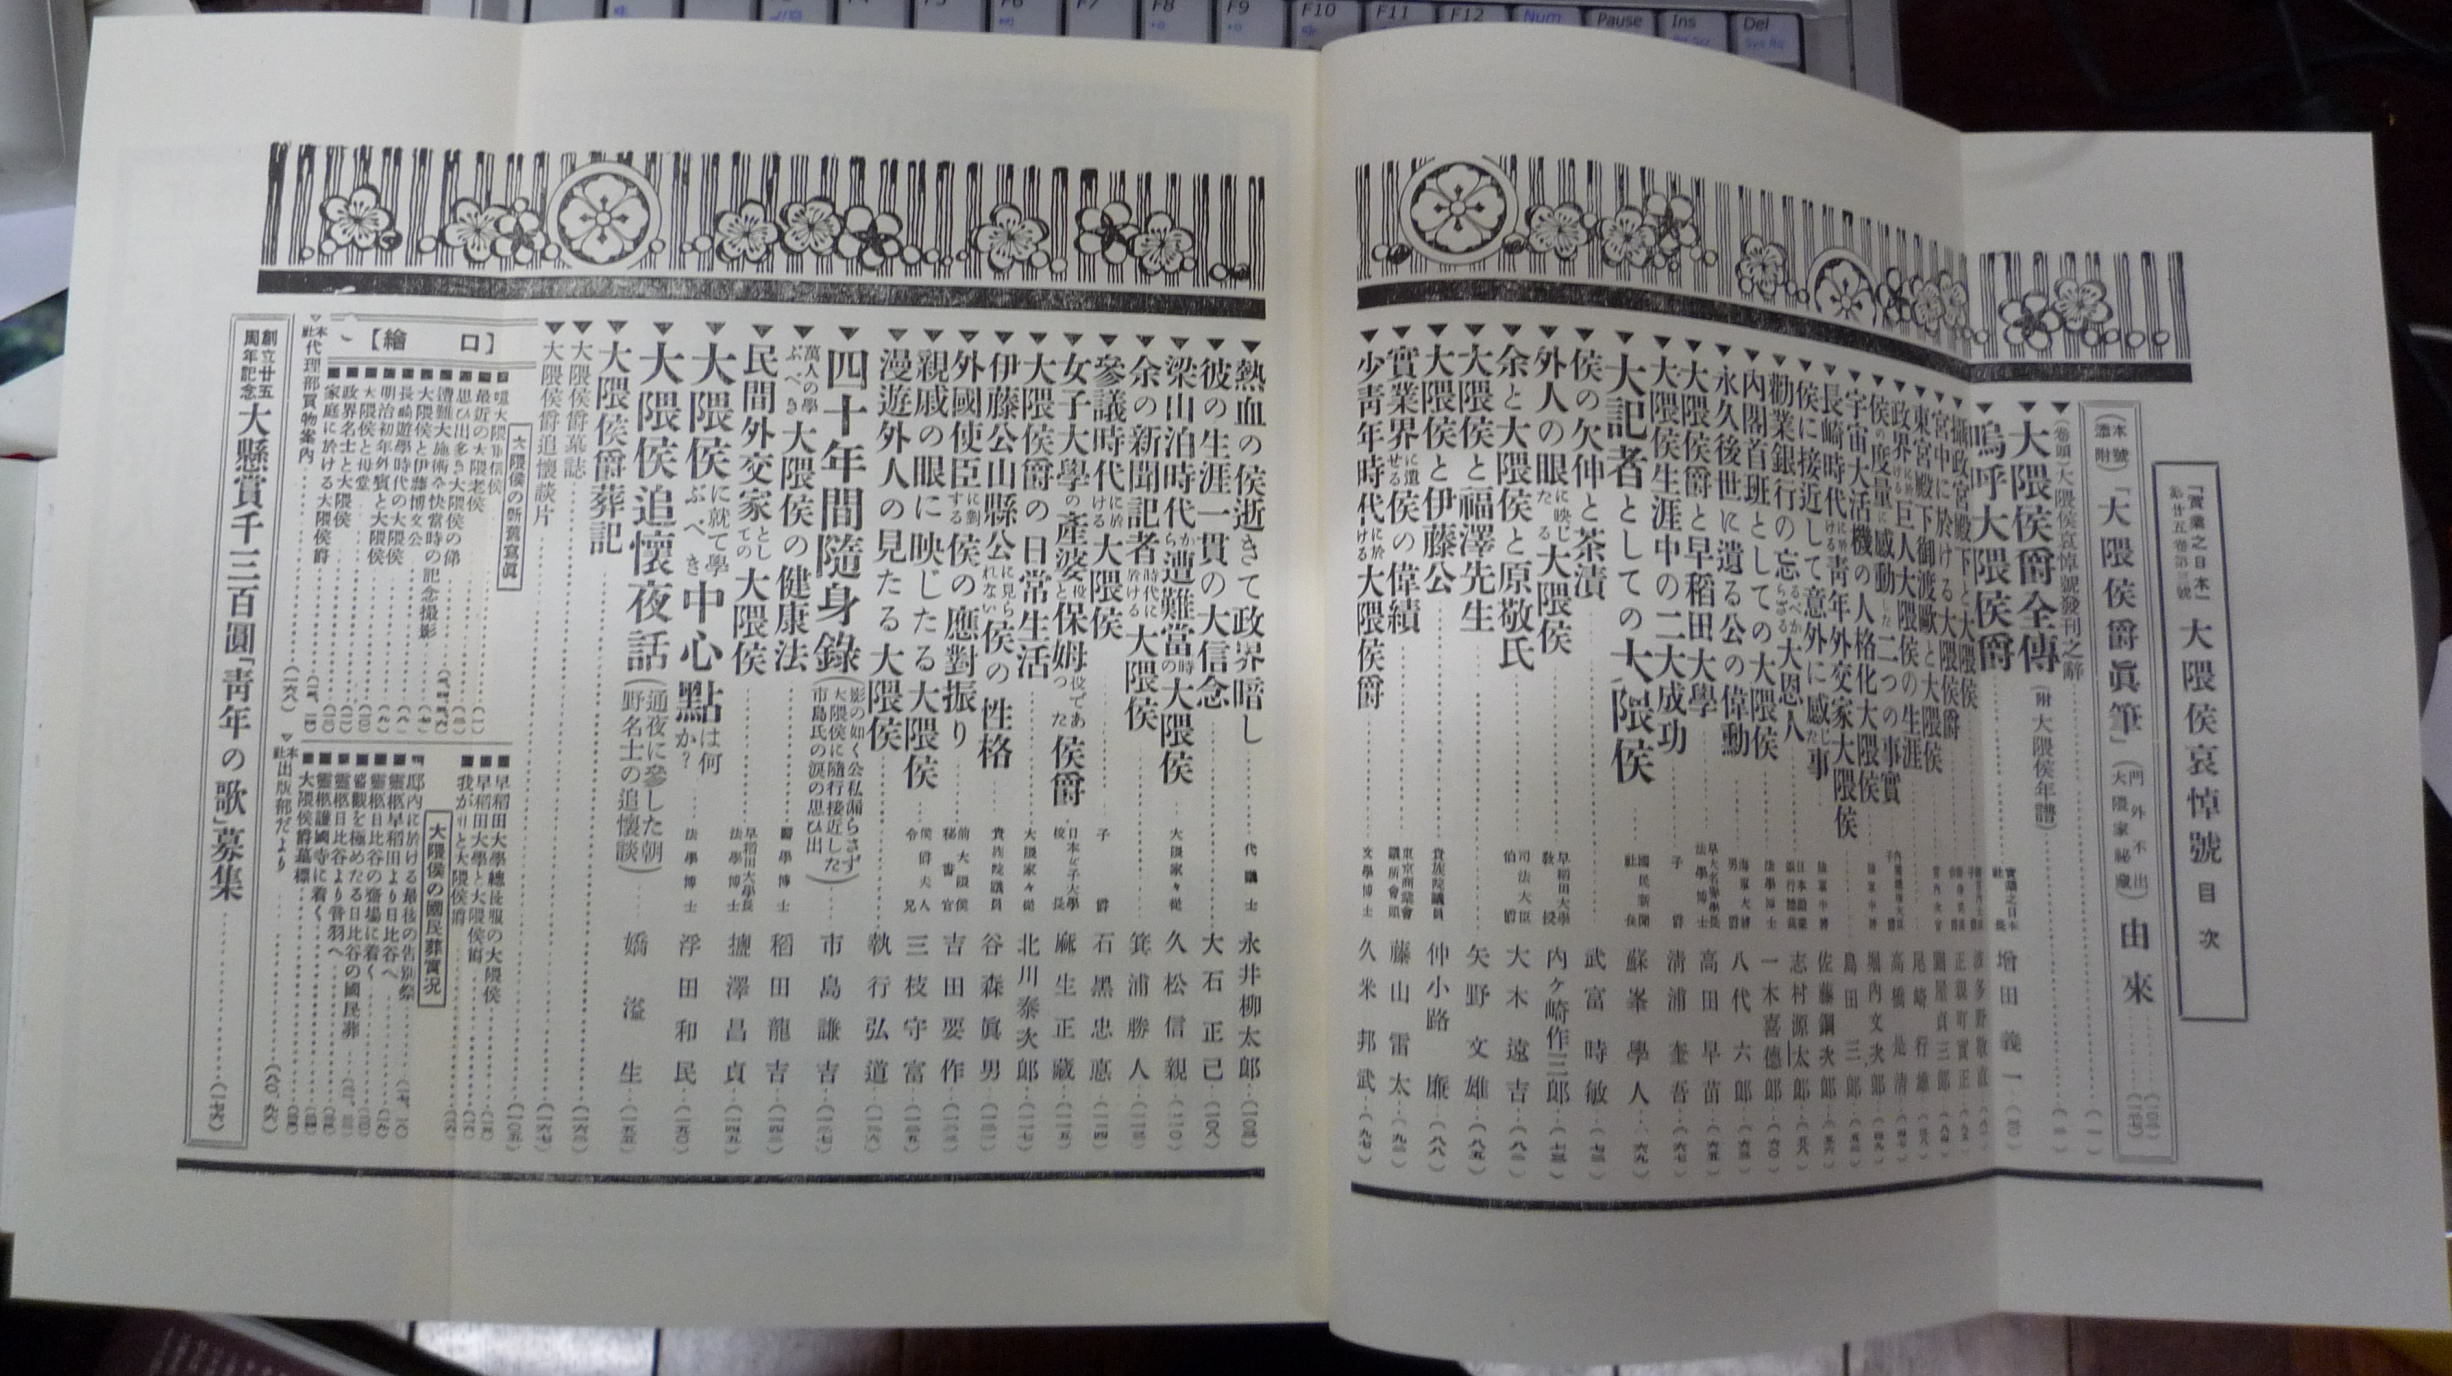 「實業之日本」第廿五卷第三號 大隈侯哀悼號 目次
(本號添附)「大隈侯爵眞筆」(門外不出 大隈家祕藏) 由來
(卷頭)大隈侯哀悼號發刊之辭……(一)
大隈侯爵全傳(附 大隈侯年譜)
嗚呼大隈侯爵 實業之日本社長 增田義一
攝政宮殿下と大隈侯 波多野敬直
宮中に於ける大隈侯爵 正親町實正
東宮殿下御渡歐と大隈侯 關屋貞三郎
政界に於ける巨人大隈侯の生涯 尾崎行雄
侯の度量に感動した二つの事實 高橋是清
宇宙大活機の人格化大隈侯 陸軍中將 堀内文次郎
長崎時代に於ける靑年外交家大隈侯 島田三郎
侯に接近して意外に感じた事 陸軍中將 佐藤鋼次郎
勸業銀行の忘るべからざる大恩人 日本勸業銀行總裁 志村源太郎
内閣首班としての大隈侯 法學博士 一木喜德郎…(六〇)
永久後世に遺る公の偉勳 海軍大將男爵 八代六郎…(六三)
大隈侯爵と早稻田大學 早大名譽學長法學博士 高田早苗…(六五)
大隈侯生涯中の二大成功 子爵 淸浦奎吾…(六七)
大記者としての大隈侯 國民新聞社長 蘇峯學人…(六九)
侯の欠伸と茶漬 武富時敏
外人の眼に映じたる大隈侯 早稻田大學敎授 内ヶ崎作三郎
余と大隈侯と原敬氏 司法大臣伯爵 大木遠吉
大隈侯と福澤先生 矢野文雄…(八五)
大隈侯と伊藤公 貴族院議員 仲小路廉…(八八)
實業界に遺せる侯の偉績 東京商業會議所會頭 藤山雷太
少靑年時代に於ける大隈侯爵 文學博士 久米邦武…(九七)
熱血の侯逝きて政界暗し 代議士 永井柳太郎
彼の生涯一貫の大信念 大石正己…(一〇八)
梁山泊時代から遭難當時の大隈侯 大隈家々從 久松信親…(一一〇)
余の新聞記者時代に於ける大隈侯 箕浦勝人
參議時代に於ける大隈侯 子爵 石黑忠悳…(一一四)
女子大學の產婆役と保姆役であつた侯爵 日本女子大學校長 麻生正藏…(一一五)
大隈侯爵の日常生活 大隈家々從 北川泰次郎…(一一七)
伊藤公山縣公に見られない侯の性格 貴族院議員 谷森眞男
外國使臣に對する侯の應對振り 前大隈侯秘書官 吉田要作
親戚の眼に映じたる大隈侯 侯爵夫人令兄 三枝守富
漫遊外人の見たる大隈侯 執行弘道
四十年間隨身錄(影の如く公私漏らさず大隈侯に隨行接近した市島氏の淚の思ひ出) 市島謙吉
萬人の學ぶべき大隈侯の健康法 醫學博士 稻田龍吉
民間外交家としての大隈侯 早稻田大學長法學博士 鹽澤昌貞
大隈侯に就て學ぶべき中心點は何か? 法學博士 浮田和民…(一五〇)
大隈侯追懷夜話(通夜に參した朝野名士の追懷談) 嬌溢生
大隈侯爵葬記
大隈侯爵墓誌
大隈侯爵追懷談片
【口繪】
大隈侯の新舊寫眞
最近の大隈老侯
思ひ出多き大隈侯の俤
遭難大施術全快當時の記念撮影
大隈侯と伊藤博文公
長崎遊學時代の大隈侯
明治初年外賓と大隈侯
大隈侯と母堂
政界名士と大隈侯
家庭に於ける大隈侯爵
大隈侯の國民葬實況
早稻田大學總長服の大隈侯
早稻田大學と大隈侯爵
邸内に於ける最後の告別祭
靈柩早稻田より日比谷へ
靈柩日比谷の齋場に着く
盛觀を極めたる日比谷の國民葬
靈柩日比谷より音羽へ
靈柩護國寺に着く
大隈侯爵墓標
本社代理部買物案内
本社出版部だより
創立廿五周年記念 大懸賞千三百圓「靑年の歌」募集